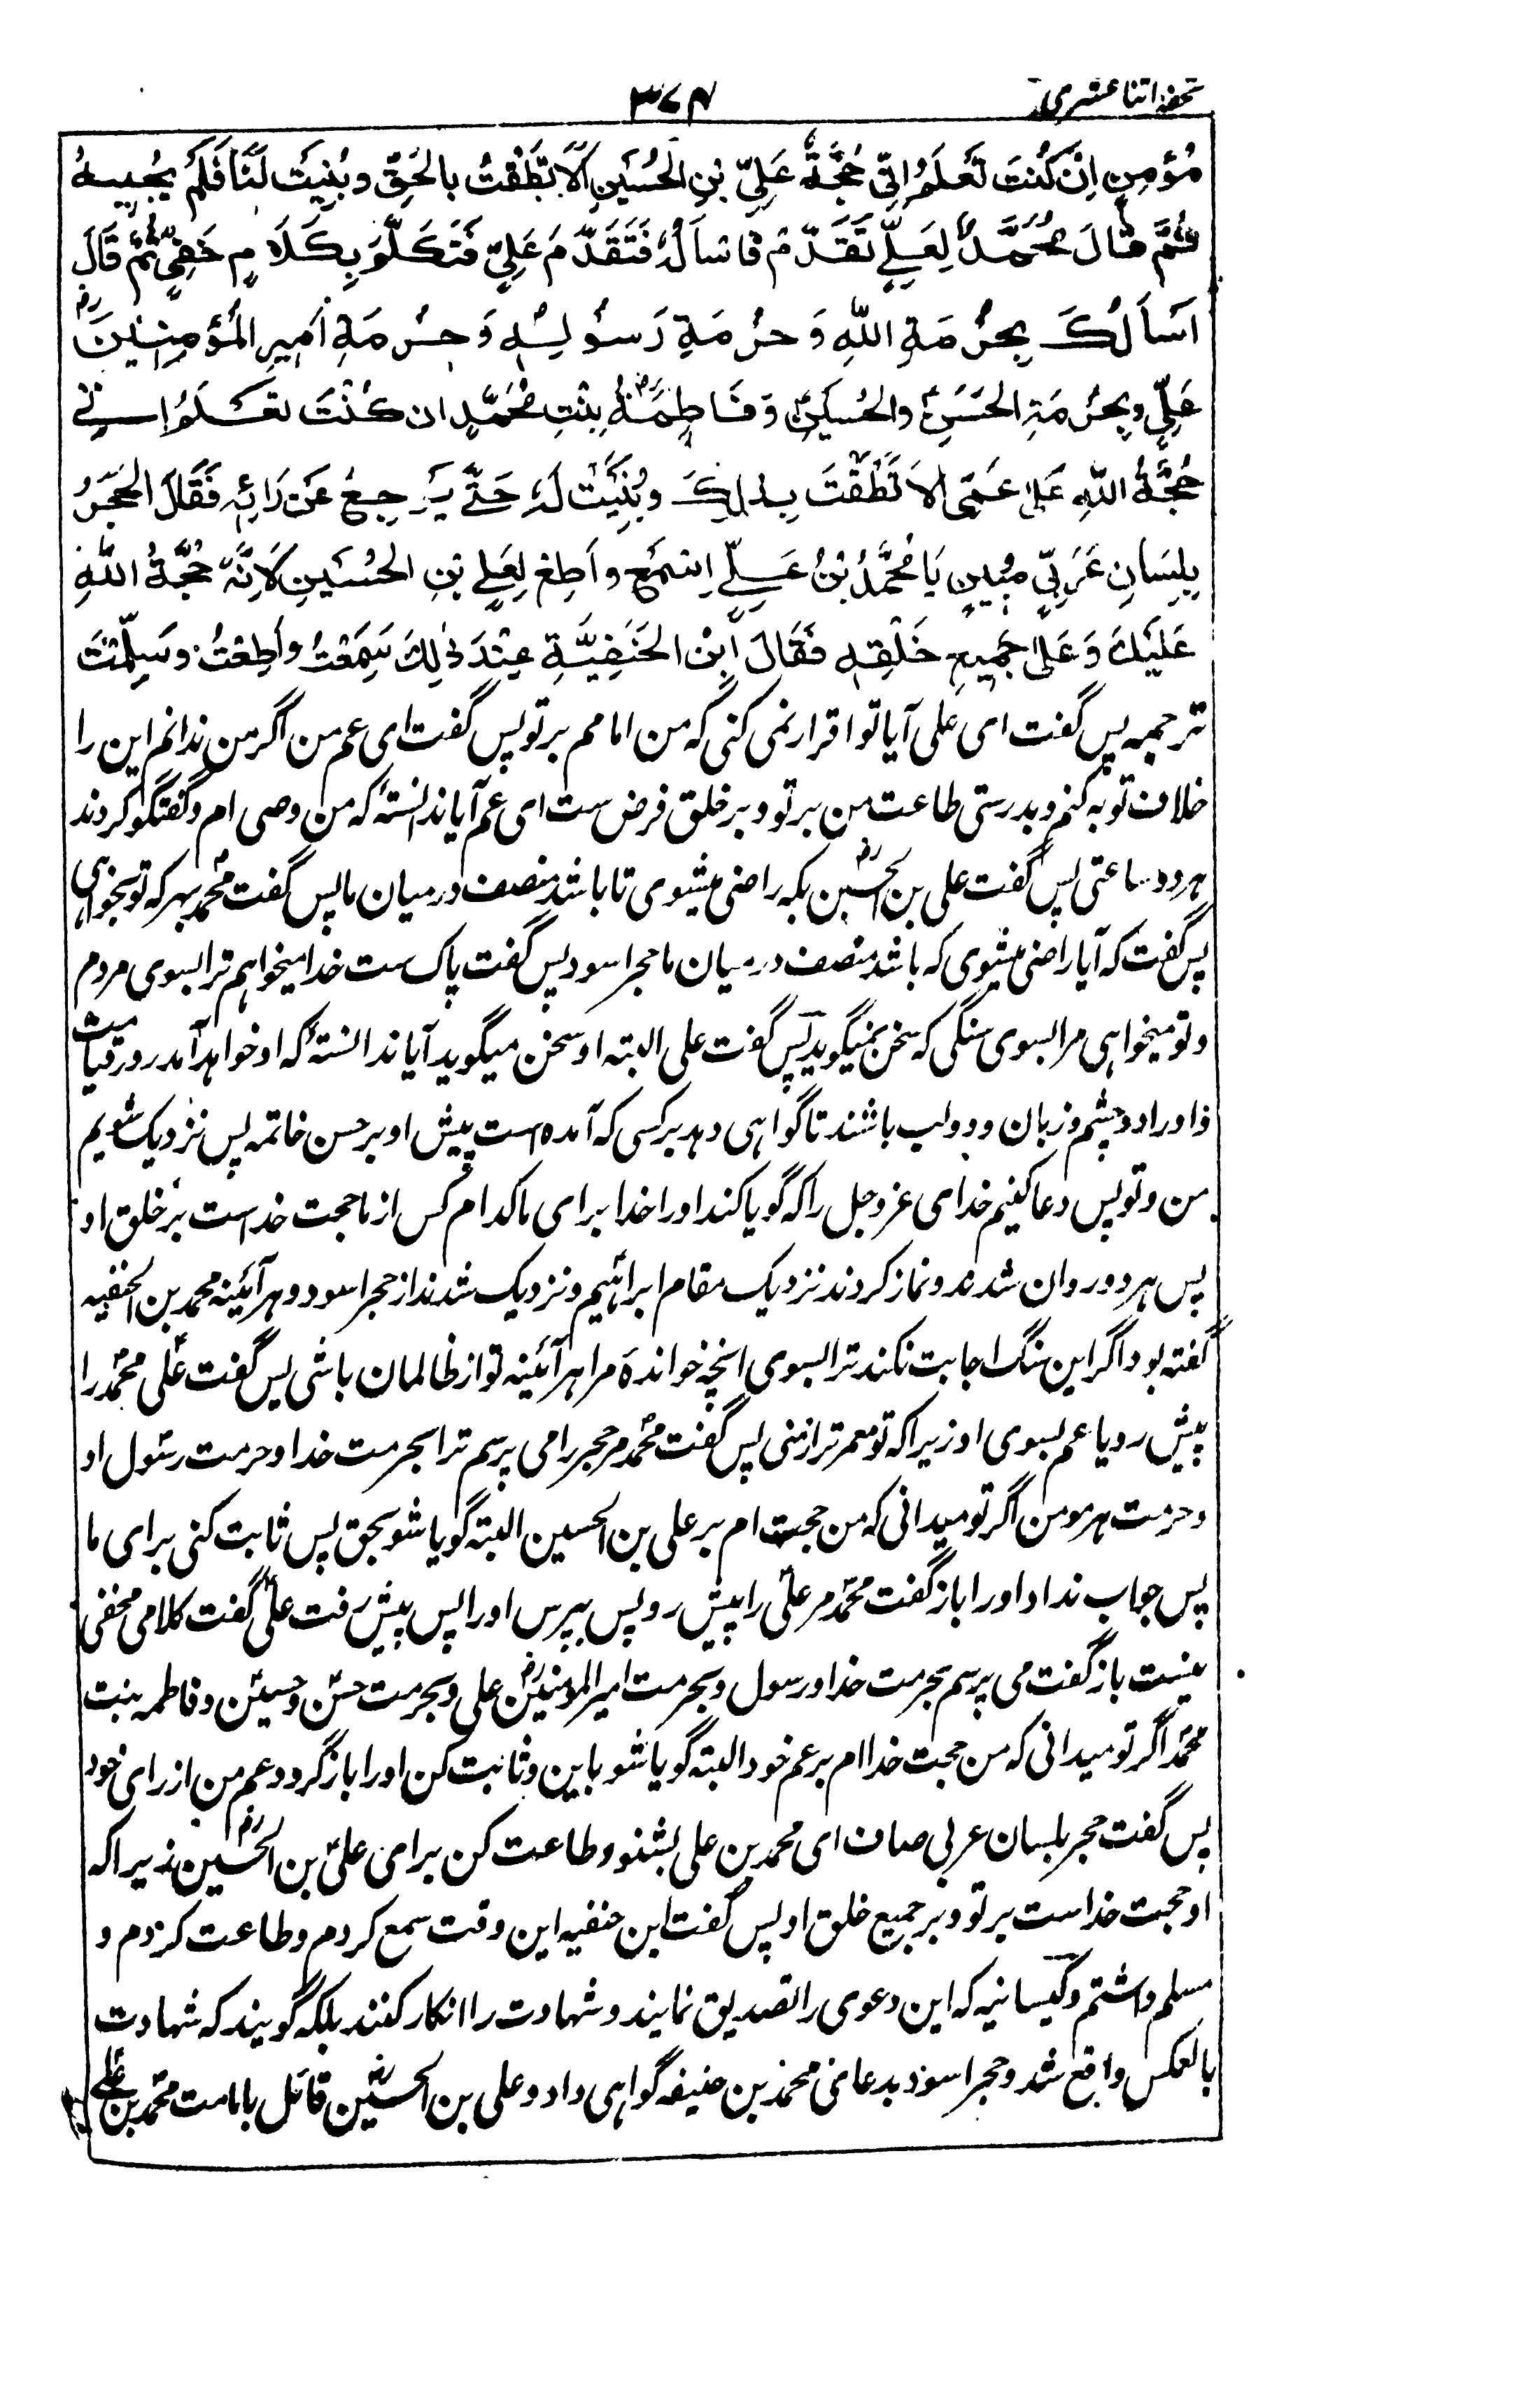 تحفهٔ اثنا عشری
۳۷۴
مُؤْمِنٍ اِنْ كُنْتَ تَعْلَمُ اِنِّی حُجَّةٌ عَلِیِّ بْنِ الحُسَیْنِ اَلَا نَطَقْتَ بِالحَقِّ وبُنِیَتْ لَنَا فَلَمْ یُجِیبهُ
ثُمَّ قَالَ مُحَمَّدٌ لِعَلِیٍّ تَقَدَّمْ فَاسْاَلْهُ فَتَقَدَّمَ عَلِیٌّ فَتَكَلَّمَ بِكَلَامٍ خَفِیٍّ ثُمَّ قَالَ
اَسْاَلُكَ بِحُرْمَةِ اللّٰهِ وَحُرْمَةِ رَسُوْلِهٖ وَحُرْمَةِ اَمِیرِ المُؤْمِنِیْنَ رض
عَلِیٍّ وبِحُرْمَةِ الحَسَنِ والحُسَیْنِ وَفَاطِمَةَ بِنْتِ مُحَمَّدٍ ان كُنْتَ تعْلَمُ اِنّی
حُجَّةُ اللّٰهِ عَلٰی عَمِّی اَلَا نَطَقْتَ بذٰلِكَ وبُنِیَتْ لَهٗ حَتّٰی یَرْجِعَ عَنْ رَائِهٖ فَقَالَ الحَجَرُ
بِلِسَانٍ عَرَبِیٍّ مُبِینٍ یَا مُحَمَّدُ بْنُ عَلِیٍّ اِسْمَعْ واَطِعْ لِعَلِی بْنِ الحُسَیْنِ لِاَنَّهٗ حُجَّةُ اللّٰهِ
عَلَیْكَ وَعَلٰی جَمِیعِ خَلْقِهٖ فَقَالَ اِبْنُ الحَنَفِیَّةِ عِنْدَ ذٰلِكَ سَمِعْتُ واَطَعْتُ وسَلَّمْتُ
ترجمه پس گفت ای علی آیا تو اقرار نمی کنی که من امامم بر تو پس گفت ای عم من اگر من ندانم این را
خلاف تو به کنم و بدرستی طاعت من بر تو و بر خلق فرض ست ای عم آیا ندانستهٔ که من وصی ام و گفتگو کردند
هر دو ساعتی پس گفت علی بن الحسین رض بکه راضی میشوی تا باشد منصف درمیان ما پس گفت محمد بهر که تو بخواهی
پس گفت که آیا راضی میشوی که باشد منصف درمیان ما حجر اسود پس گفت پاک ست خدا میخواهم ترا بسوی مردم
و تو میخواهی مرا بسوی سنگی که سخن نمیگوید پس گفت علی البته او سخن میگوید آیا ندانستهٔ که او خواهد آمد روز قیامت
و او را دو چشم و زبان و دو لب باشند تا گواهی دهد بر کسی که آمده است پیش او بر حسن خاتمه پس نزدیک شویم
من و تو پس دعا کنیم خدای عز و جل را که گویا کند او را خدا برای ما کدام کس از ما حجت خداست بر خلق او
پس هر دو روان شدند و نماز کردند نزدیک مقام ابراهیم و نزدیک شدند از حجر اسود و هر آئینه محمد بن الحنفیه
گفته بود اگر این سنگ اجابت نکند ترا بسوی انچه خواندهٔ مرا هر آئینه تو از ظالمان باشی پس گفت علی محمد را
پیش رو یا عم بسوی او زیرا که تو معمر تر از منی پس گفت محمد مر حجر را می پرسم ترا بحرمت خدا و حرمت رسول او
و حرمت هر مومن اگر تو میدانی که من حجت ام بر علی بن الحسین البته گویا شو بحق پس ثابت کنی برای ما
پس جواب نداد او را باز گفت محمد مر علی را پیش رو پس بپرس او را پس پیش رفت علی گفت کلامی مخفی
باز گفت می پرسم بحرمت خدا و رسول و بحرمت امیر المؤمنین علی و بحرمت حسن و حسین و فاطمه بنت
محمد اگر تو میدانی که من حجت خدا ام بر عم خود البته گویا شو باین و ثابت کن او را باز گردد عم من از رای خود
پس گفت حجر بلسان عربی صاف ای محمد بن علی بشنو و طاعت کن برای علی بن الحسین رض زیرا که
او حجت خداست بر تو و بر جمیع خلق او پس گفت ابن حنفیه این وقت سمع کردم و طاعت کردم و
مسلم داشتم و کیسانیه که این دعوی را تصدیق نمایند و شهادت را انکار کنند بلکه گویند که شهادت
بالعکس واقع شد و حجر اسود بدعای محمد بن حنیفه گواهی داد و علی بن الحسین قائل بامامت محمد بن علی